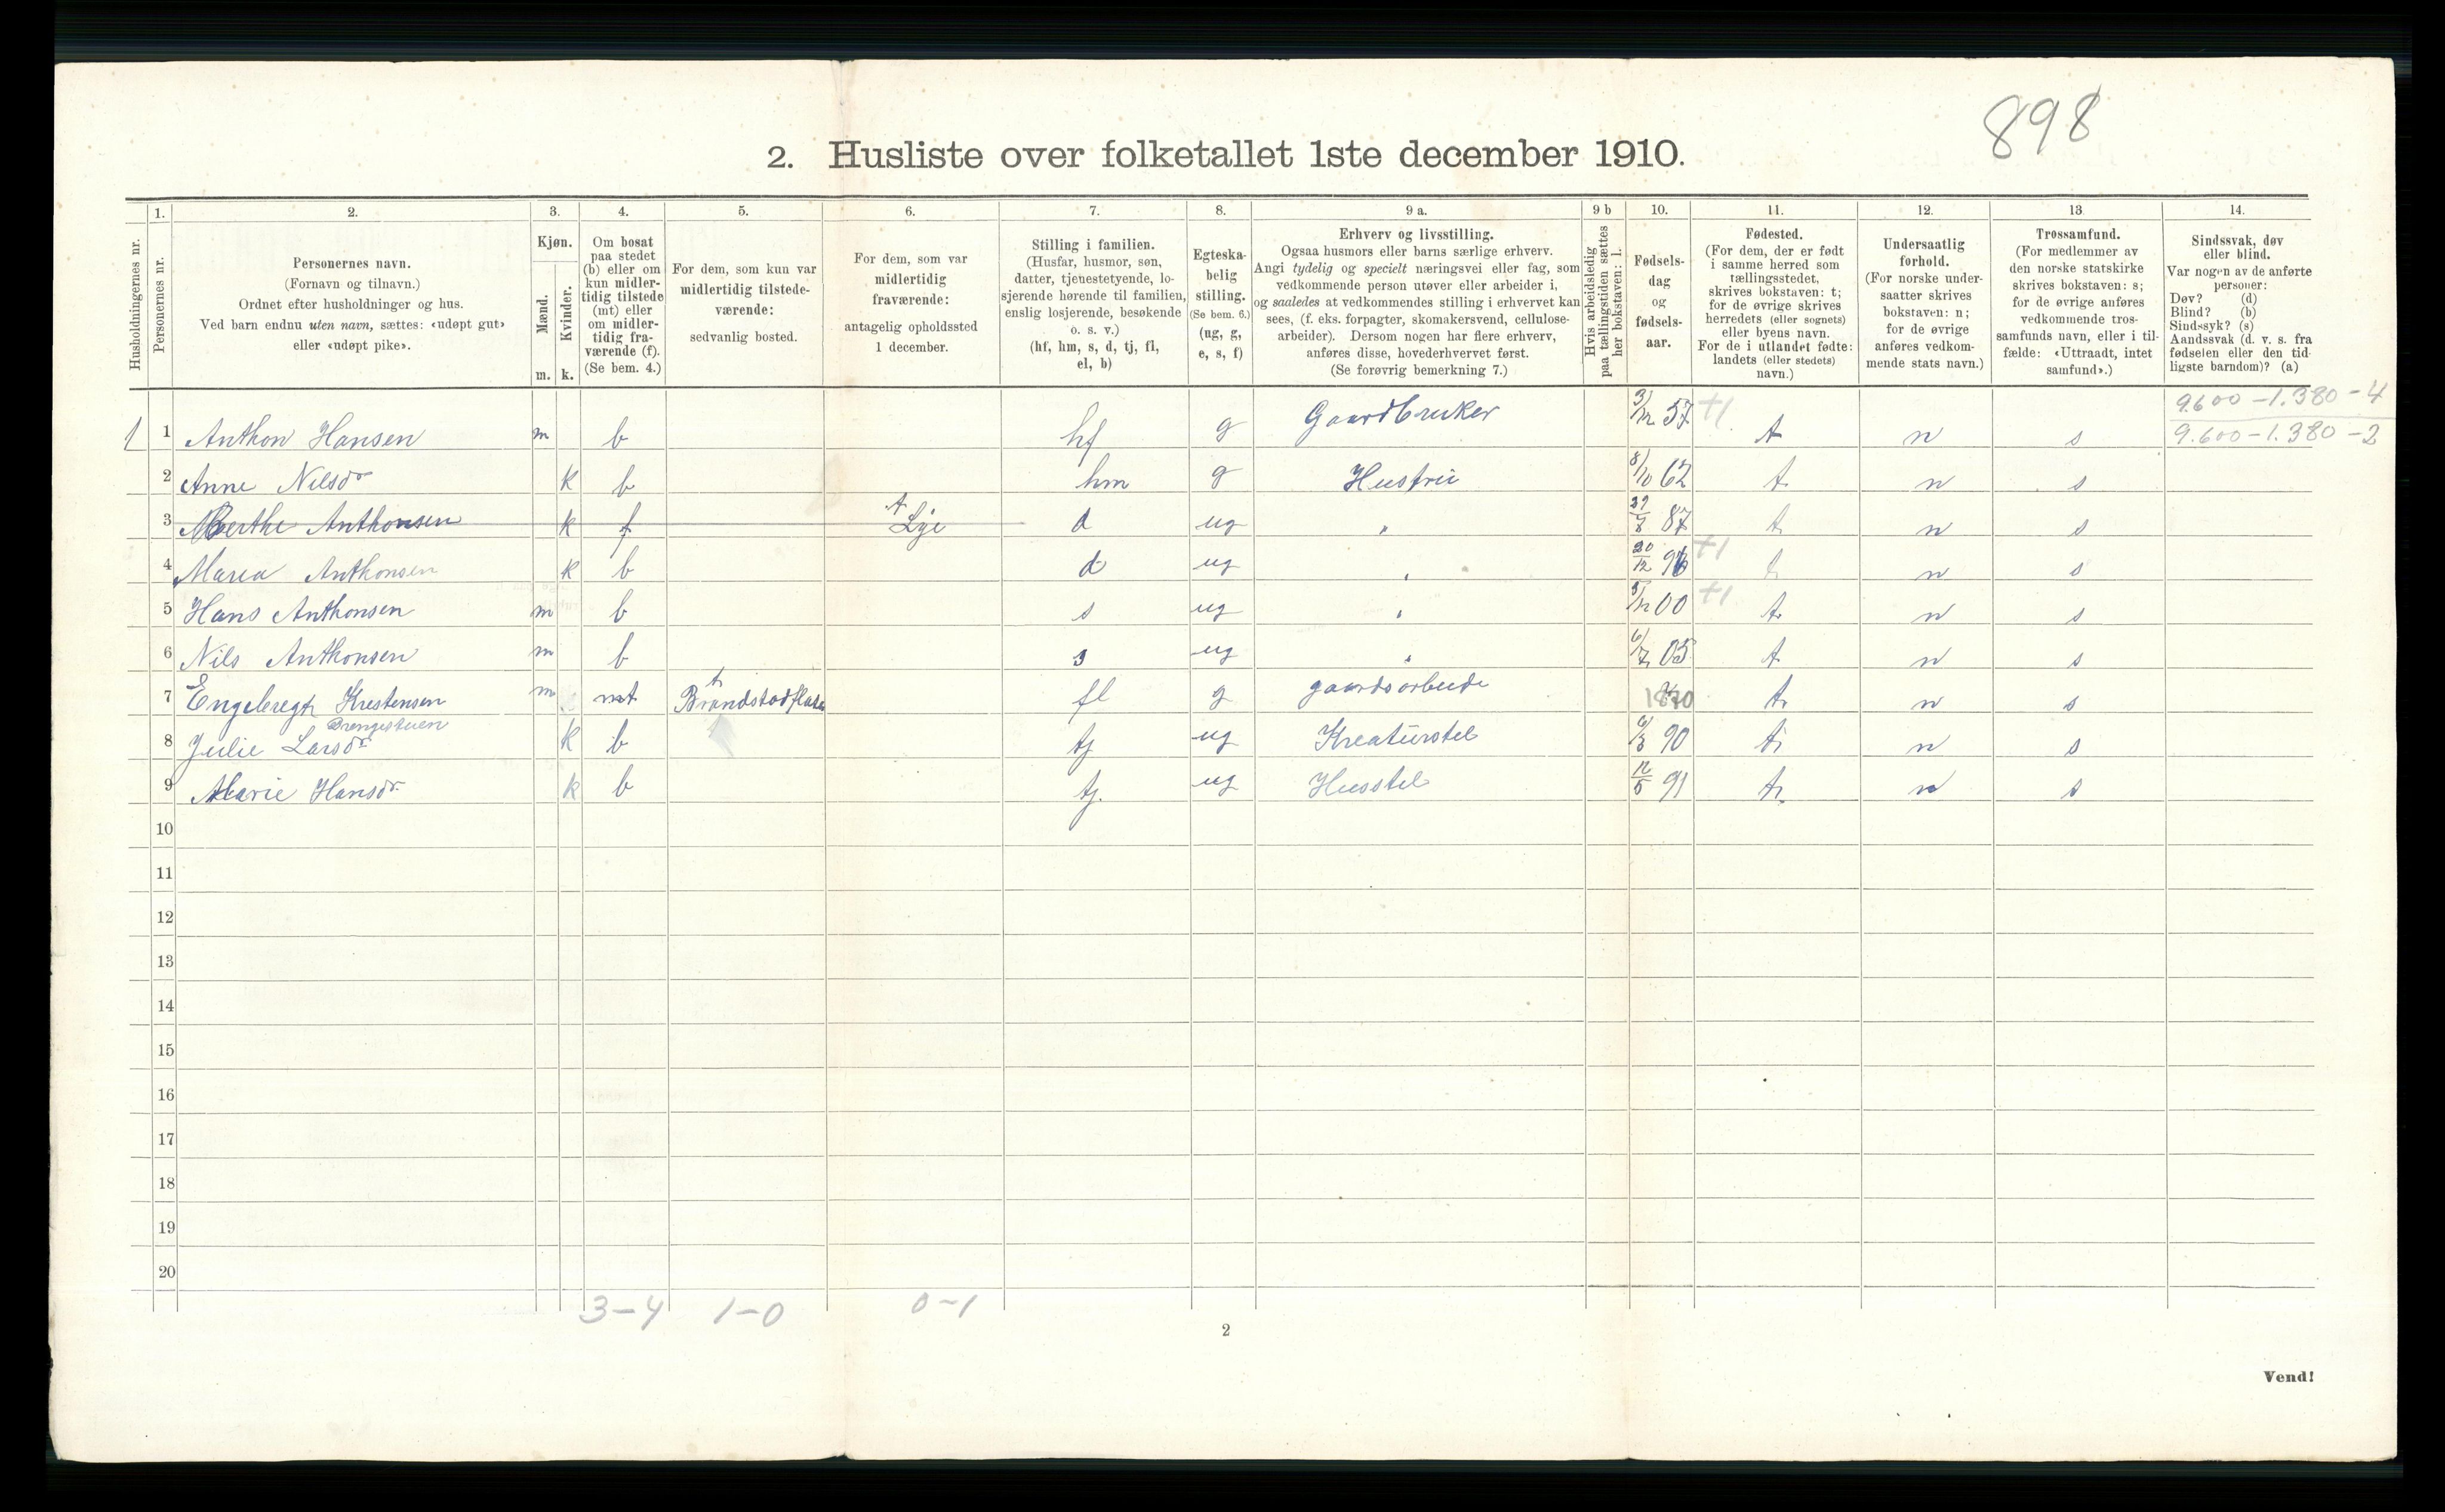 898
2. Husliste over folketallet 1ste december 1910.
1. 2. 3. 4. 5. 6. 7. 8. 9 a. 9 b 10. 11. 12. 13 14.
Husholdningernes nr.
Personernes nr.
Personernes navn.
(Fornavn og tilnavn.)
Ordnet efter husholdninger og hus.
Ved barn endnu uten navn, sættes: «udøpt gut»
eller «udøpt pike».
Kjøn.
Mænd.
Kvinder.
m. k.
Om bosat
paa stedet
(b) eller om
kun midler-
tidig tilstede
(mt) eller
om midler-
tidig fra-
værende (f).
(Se bem. 4.)
For dem, som kun var
midlertidig tilstede-
værende:
sedvanlig bosted.
For dem, som var
midlertidig
fraværende:
antagelig opholdssted
1 december.
Stilling i familien.
(Husfar, husmor, søn,
datter, tjenestetyende, lo-
sjerende hørende til familien,
enslig losjerende, besøkende
o. s. v.)
(hf, hm, s, d, tj, fl,
el, b)
Egteska-
belig
stilling.
(Se bem. 6.)
(ug, g,
e, s, f)
Erhverv og livsstilling.
Ogsaa husmors eller barns særlige erhverv.
Angi tydelig og specielt næringsvei eller fag, som
vedkommende person utøver eller arbeider i,
og saaledes at vedkommendes stilling i erhvervet kan
sees, (f. eks. forpagter, skomakersvend, cellulose-
arbeider). Dersom nogen har flere erhverv,
anføres disse, hovederhvervet først.
(Se forøvrig bemerkning 7.)
Hvis arbeidsledig
paa tællingstiden sættes
her bokstaven: l.
Fødsels-
dag
og
fødsels-
aar.
Fødested.
(For dem, der er født
i samme herred som
tællingsstedet,
skrives bokstaven: t;
for de øvrige skrives
herredets (eller sognets)
eller byens navn.
For de i utlandet fødte:
landets (eller stedets)
navn.)
Undersaatlig
forhold.
(For norske under-
saatter skrives
bokstaven: n;
for de øvrige
anføres vedkom-
mende stats navn.)
Trossamfund.
(For medlemmer av
den norske statskirke
skrives bokstaven: s;
for de øvrige anføres
vedkommende tros-
samfunds navn, eller i til-
fælde: «Uttraadt, intet
samfund».)
Sindssvak, døv
eller blind.
Var nogen av de anførte
personer:
Døv? (d)
Blind? (b)
Sindssyk? (s)
Aandssvak (d. v. s. fra
fødselen eller den tid-
ligste barndom)? (a)
9.600 - 1.380 - 4
1 1 Anthon Hansen m b hf g Gaardbruker 3/12 57 +1 t n s 9.600 - 1.380 - 2
2 Anne Nilsdr k b hm g Hustru 8/10 62 t n s
3 Berthe Anthonsen k f t Lye d ug " 27/7 87 t n s
4 Marea Anthonsen k b d ug " 20/12 96 +1 t n s
5 Hans Anthonsen m b s ug " 5/12 00 +1 t n s
6 Nils Anthonsen m b s ug " 6/7 05 t n s
7 Engebregt Krestensen m mt t Brandstadflaten fl g gaardsarbeide 1870 t n s
Drengestuen
8 Julie Larsdr k b tj ug Kreaturstel 6/3 90 t n s
9 Marie Hansdr k b tj. ug Husstel 12/5 91 t. n s
10
11
12
13
14
15
16
17
18
19
20
3-4 1-0 0-1
2
Vend!